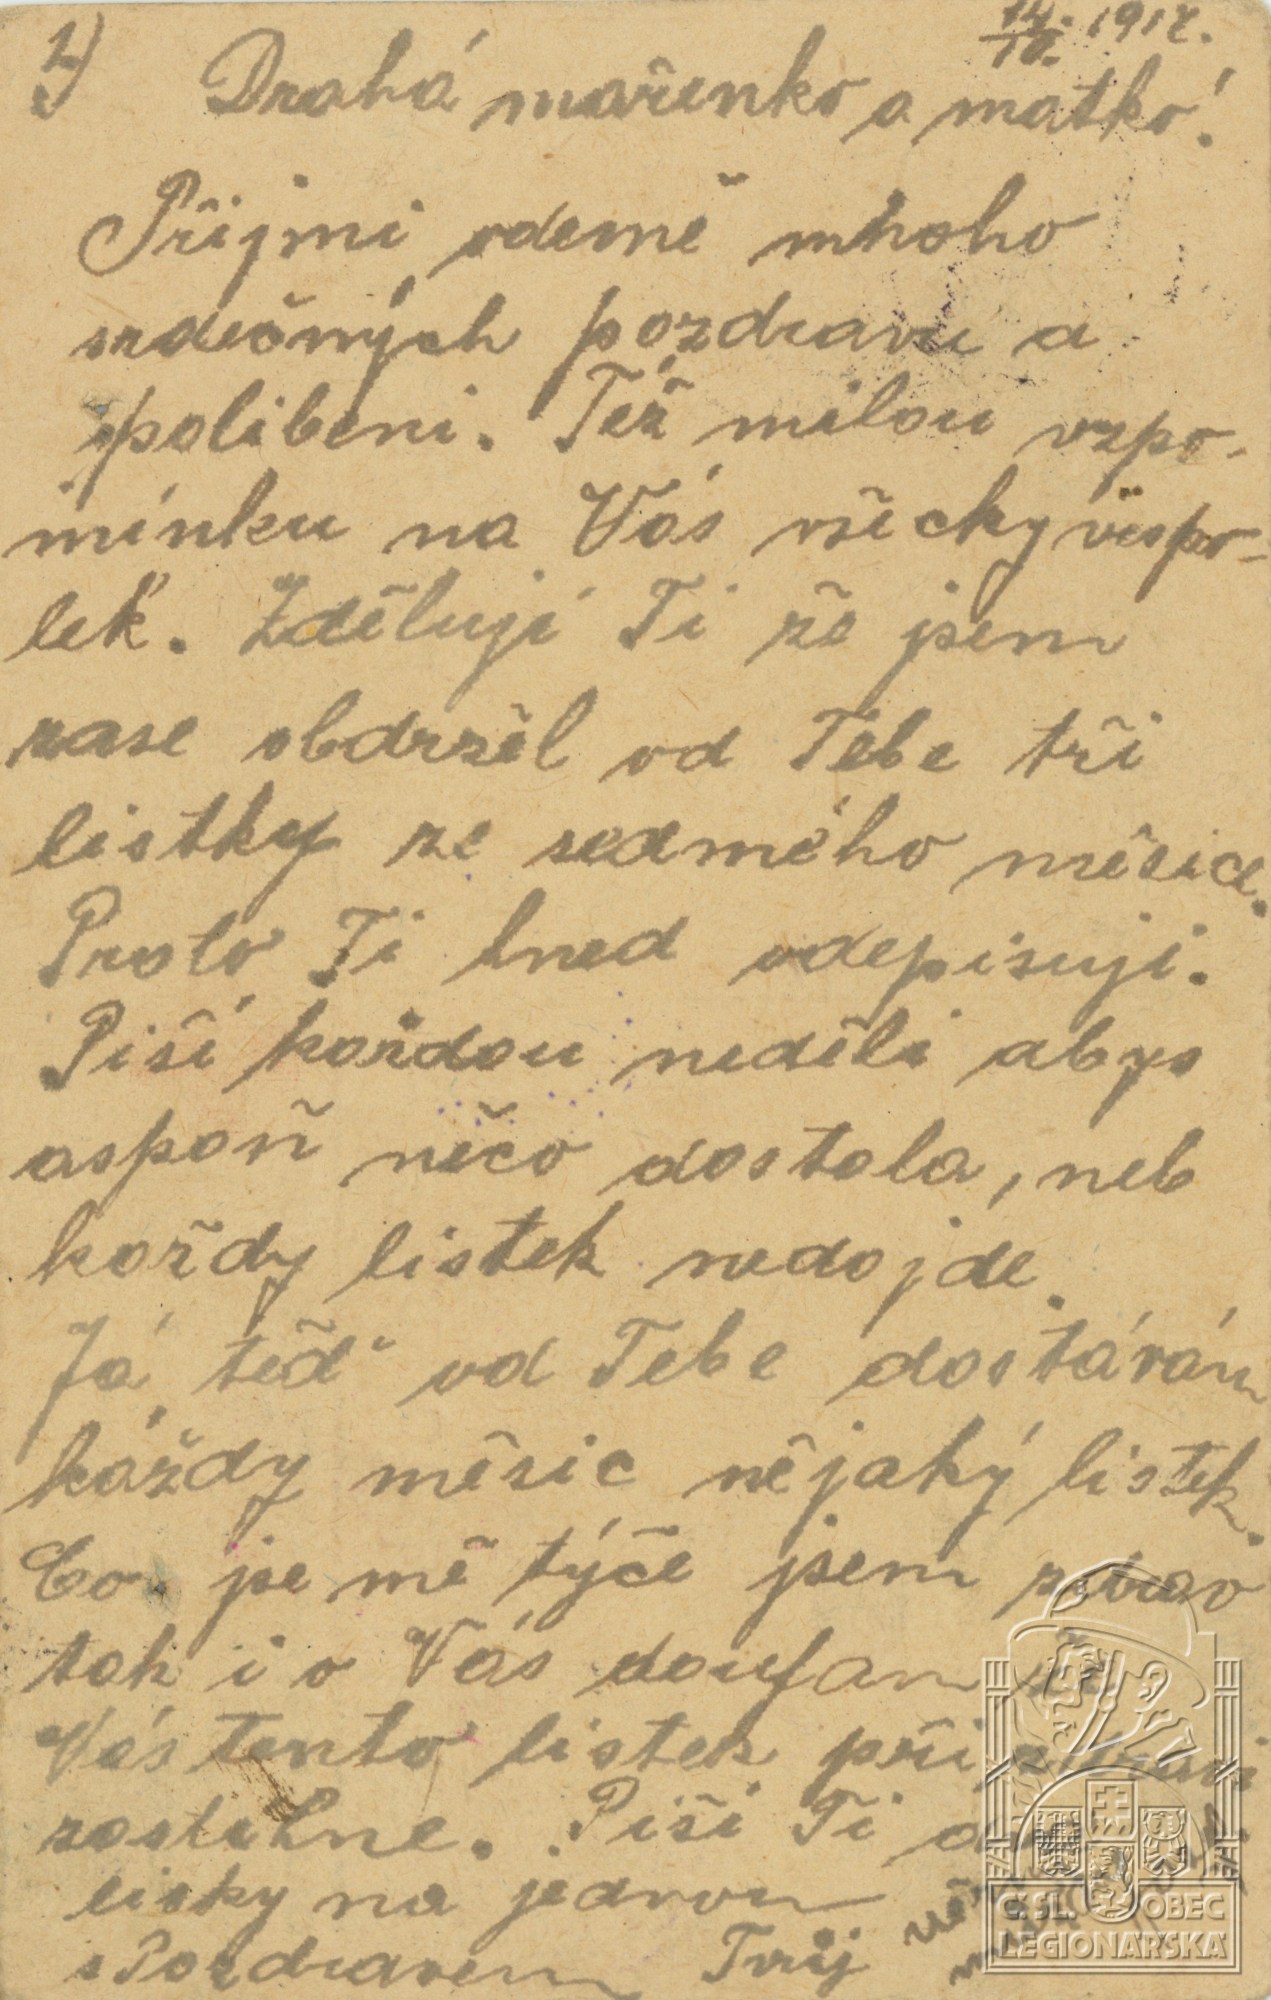 2) 14./10. 1917.
Drahá mařenko a matko!
Přijmi odemě mnoho
srdečných pozdravu a
polibeni. Též milou vzpo-
mínku na Vás všecky vespo-
lek. Zdělují Ti že jsem
zase obdržěl od Tebe tři
listky ze sedmého měsice.
Proto Ti hned odepisuji.
Piší každou neděli abys
aspoň něčo dostala, neb
každy listek nedojde.
Já těd od Tebe dostáván
káždy měsic nějaký listek.
Co je mě týče jsem zdrav
tak i o Vás doufam že
Vás tento listek při zdravi
zastihne. Piši Ti
lisky na jednou
s Pozdravem Tvůj
Č. SL. OBEC
LEGIONÁŘSKÁ